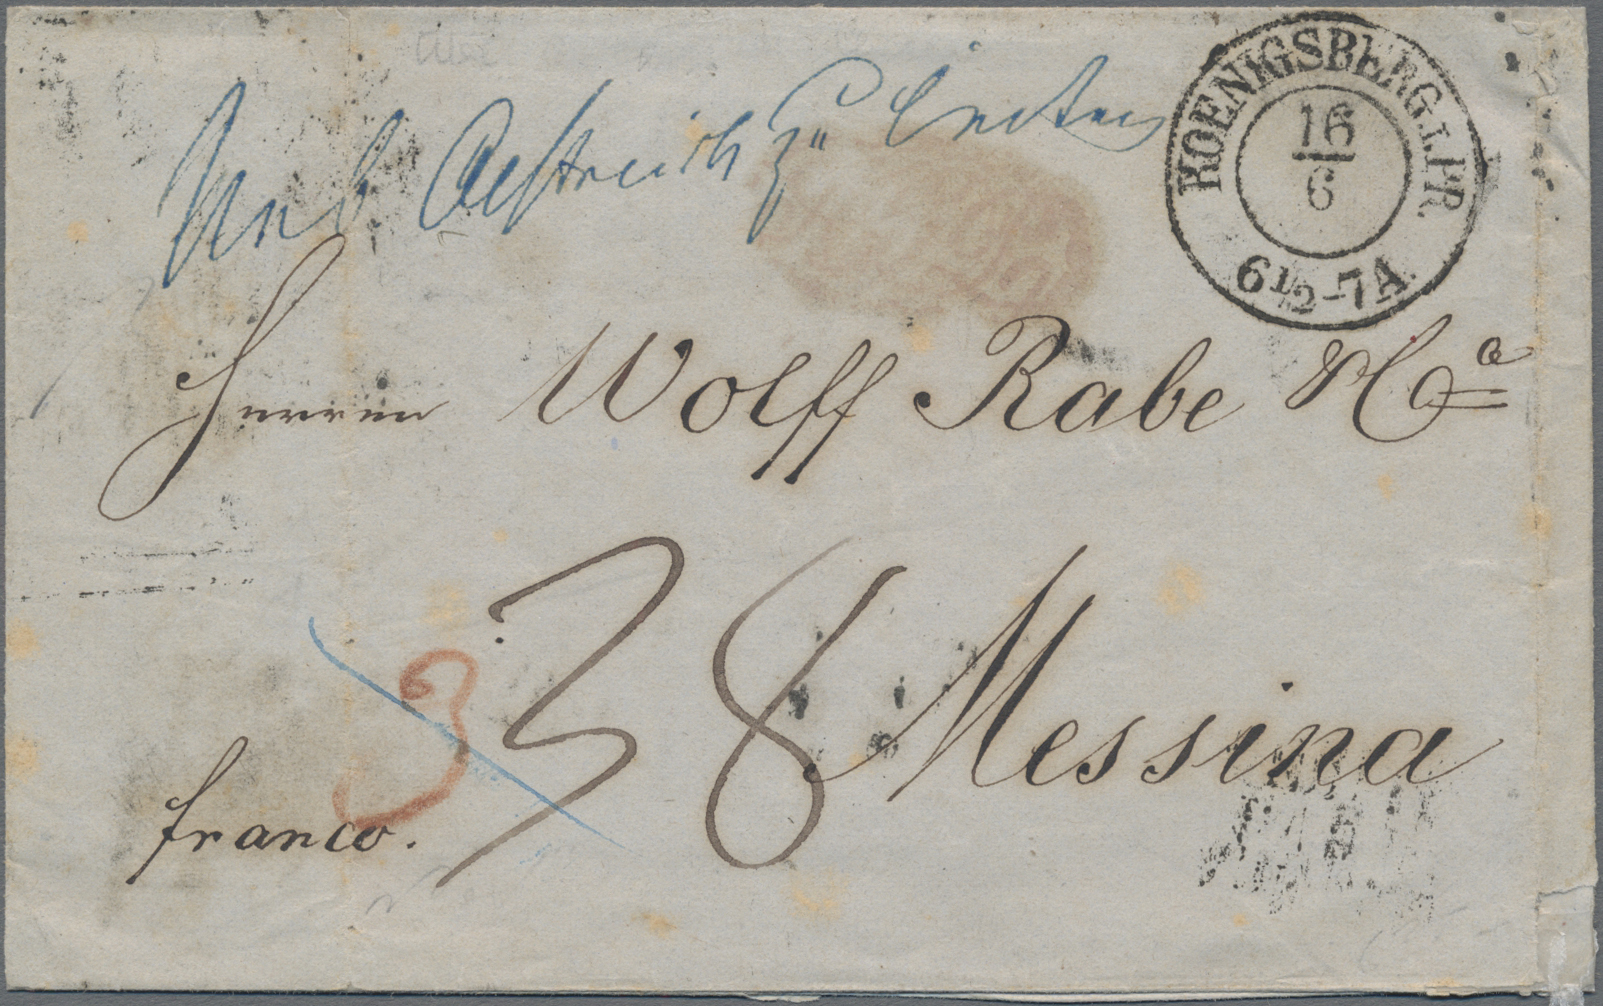 Oestreich zu
KOENIGSBERG.I.PR.
16
6
6 1/2-7A.
Herren Wolff Rabe & Co
3
38
Messina
franco.